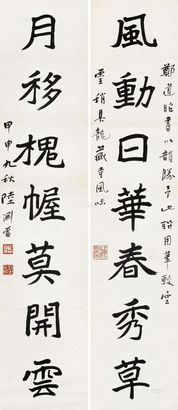 風動日華春秀草
月移槐幄莫開雲
鄭道昭書以韻勝予此聯用筆較雲
雲稍具龍藏寺風味
甲申九秋陸淵雷